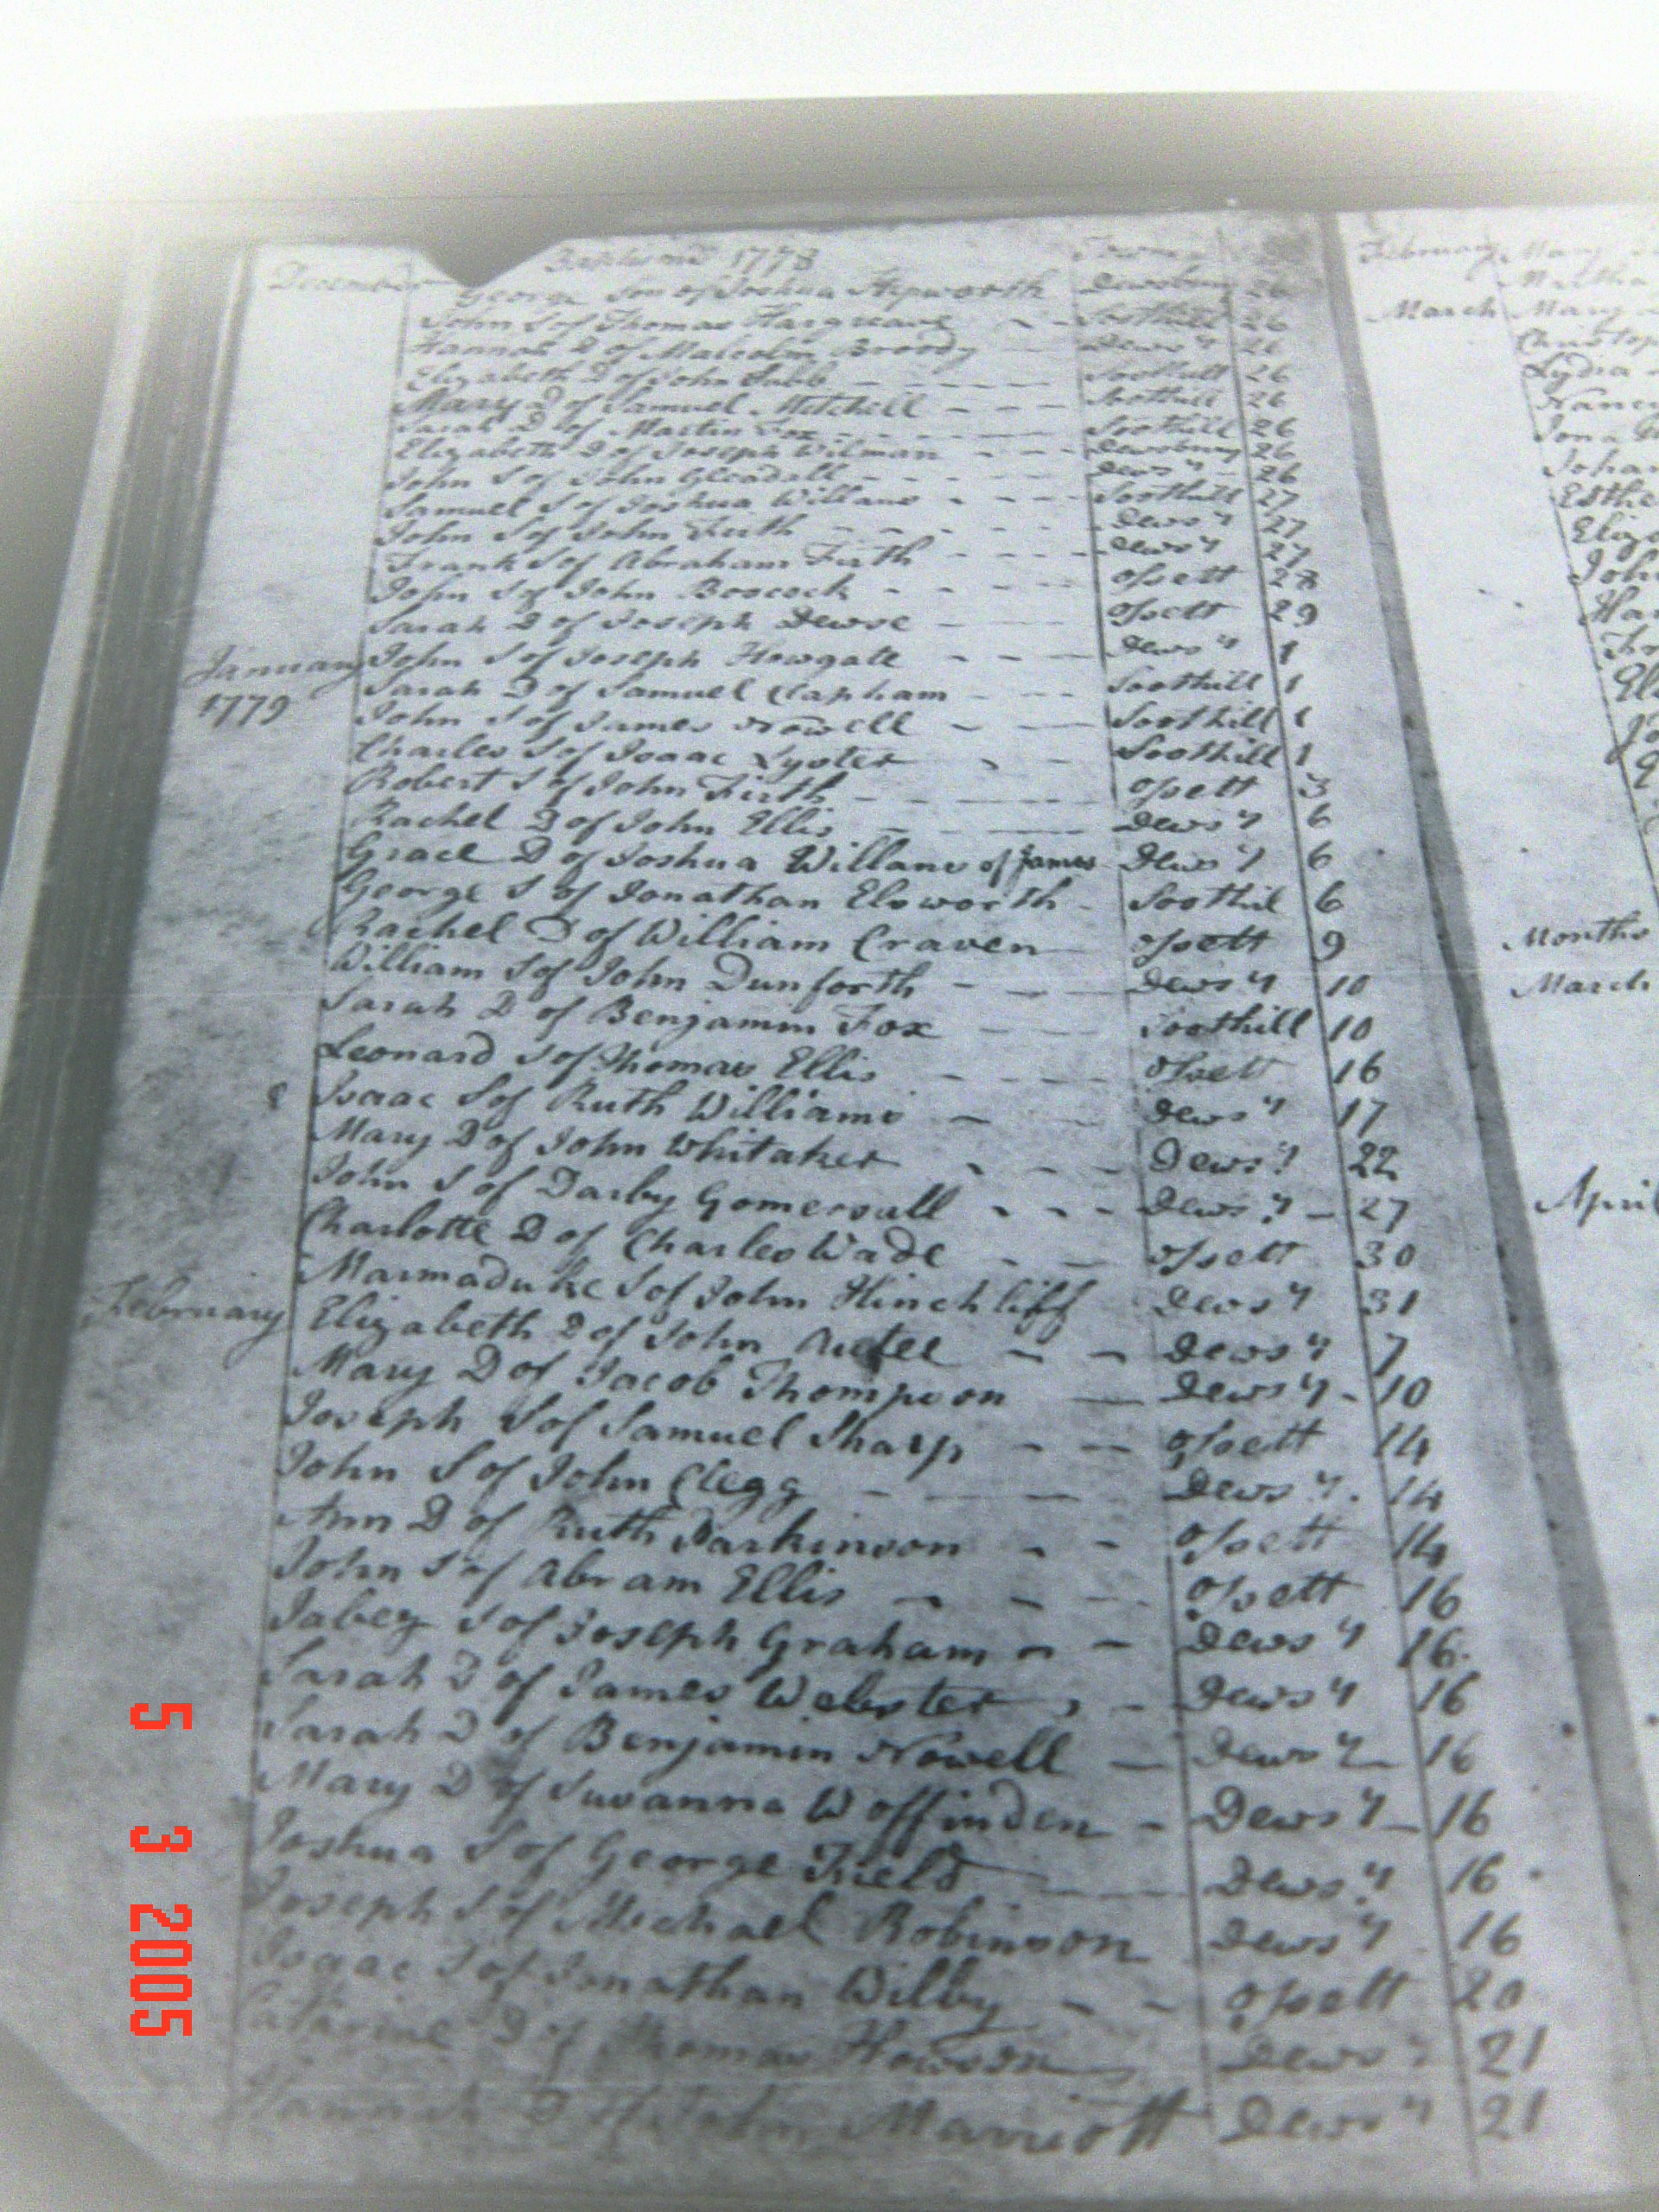 December Baptisms 1778 Town
George Son of Joshua Hepworth Dewsbury 26
John S of Thomas Hargreave Soothill 26
Hannah D of Malcolm Brody Dews y 26
Elizabeth D of John Tabb Soothill 26
Mary D of Samuel Mitchell Soothill 26
Sarah D of Martin Fox Soothill 26
Elizabeth D of Joseph Wilman Dewsbury 26
John S of John Gleadall Dews y 26
Samuel S of Joshua Willans Soothill 27
John S of John Firth Dews y 27
Frank S of Abraham Firth Dews y 27
John S of John Boocock Ossett 28
Sarah D of Joseph Dewse Ossett 29
January John S of Joseph Howgate Dews y 1
1779 Sarah D of Samuel Clapham Soothill 1
John S of James Nowell Soothill 1
Charles S of Isaac Lyster Soothill 1
Robert S of John Firth Ossett 3
Rachel D of John Ellis Dews y 6
Grace D of Joshua Willans of James Dews y 6
George S of Jonathan Elsworth Soothil 6
Rachel D of William Craven Ossett 9
William S of John Dunforth Dews y 10
Sarah D of Benjamin Fox Soothill 10
Leonard S of Thomas Ellis Ossett 16
Isaac S of Ruth Williams Dews y 17
Mary D of John Whitaker Dews y 22
John S of Darby Gomersall Dews y 27
Charlotte D of Charles Wade Ossett 30
Marmaduke S of John Hinchliff Dews y 31
February Elizabeth D of John Dews y 7
Mary D of Jacob Thompson Dews y 10
Joseph S of Samuel Sharp Ossett 14
John S of John Clegg Dews y 14
Ann D of Ruth Parkinson Ossett 14
John S of Abram Ellis Ossett 16
Jabez S of Joseph Graham Dews y 16
Sarah D of James Webster Dews y 16
Sarah D of Benjamin Nowell Dews y 16
Mary D of Susanna Woffinden Dews y 16
Joshua S of George Field Dews y 16
Joseph S of Michael Robinson Dews y 16
Isaac S of Jonathan Wilby Ossett 20
Catarine D of Thomas Howson Dews y 21
Hannah D of John Marriott Dews y 21
February Mary
Martha
March Mary
Christop
Lydia
Nanc
Jona
Johan
Esthe
Eliza
John
Har
Months
March
April
5 3 2005